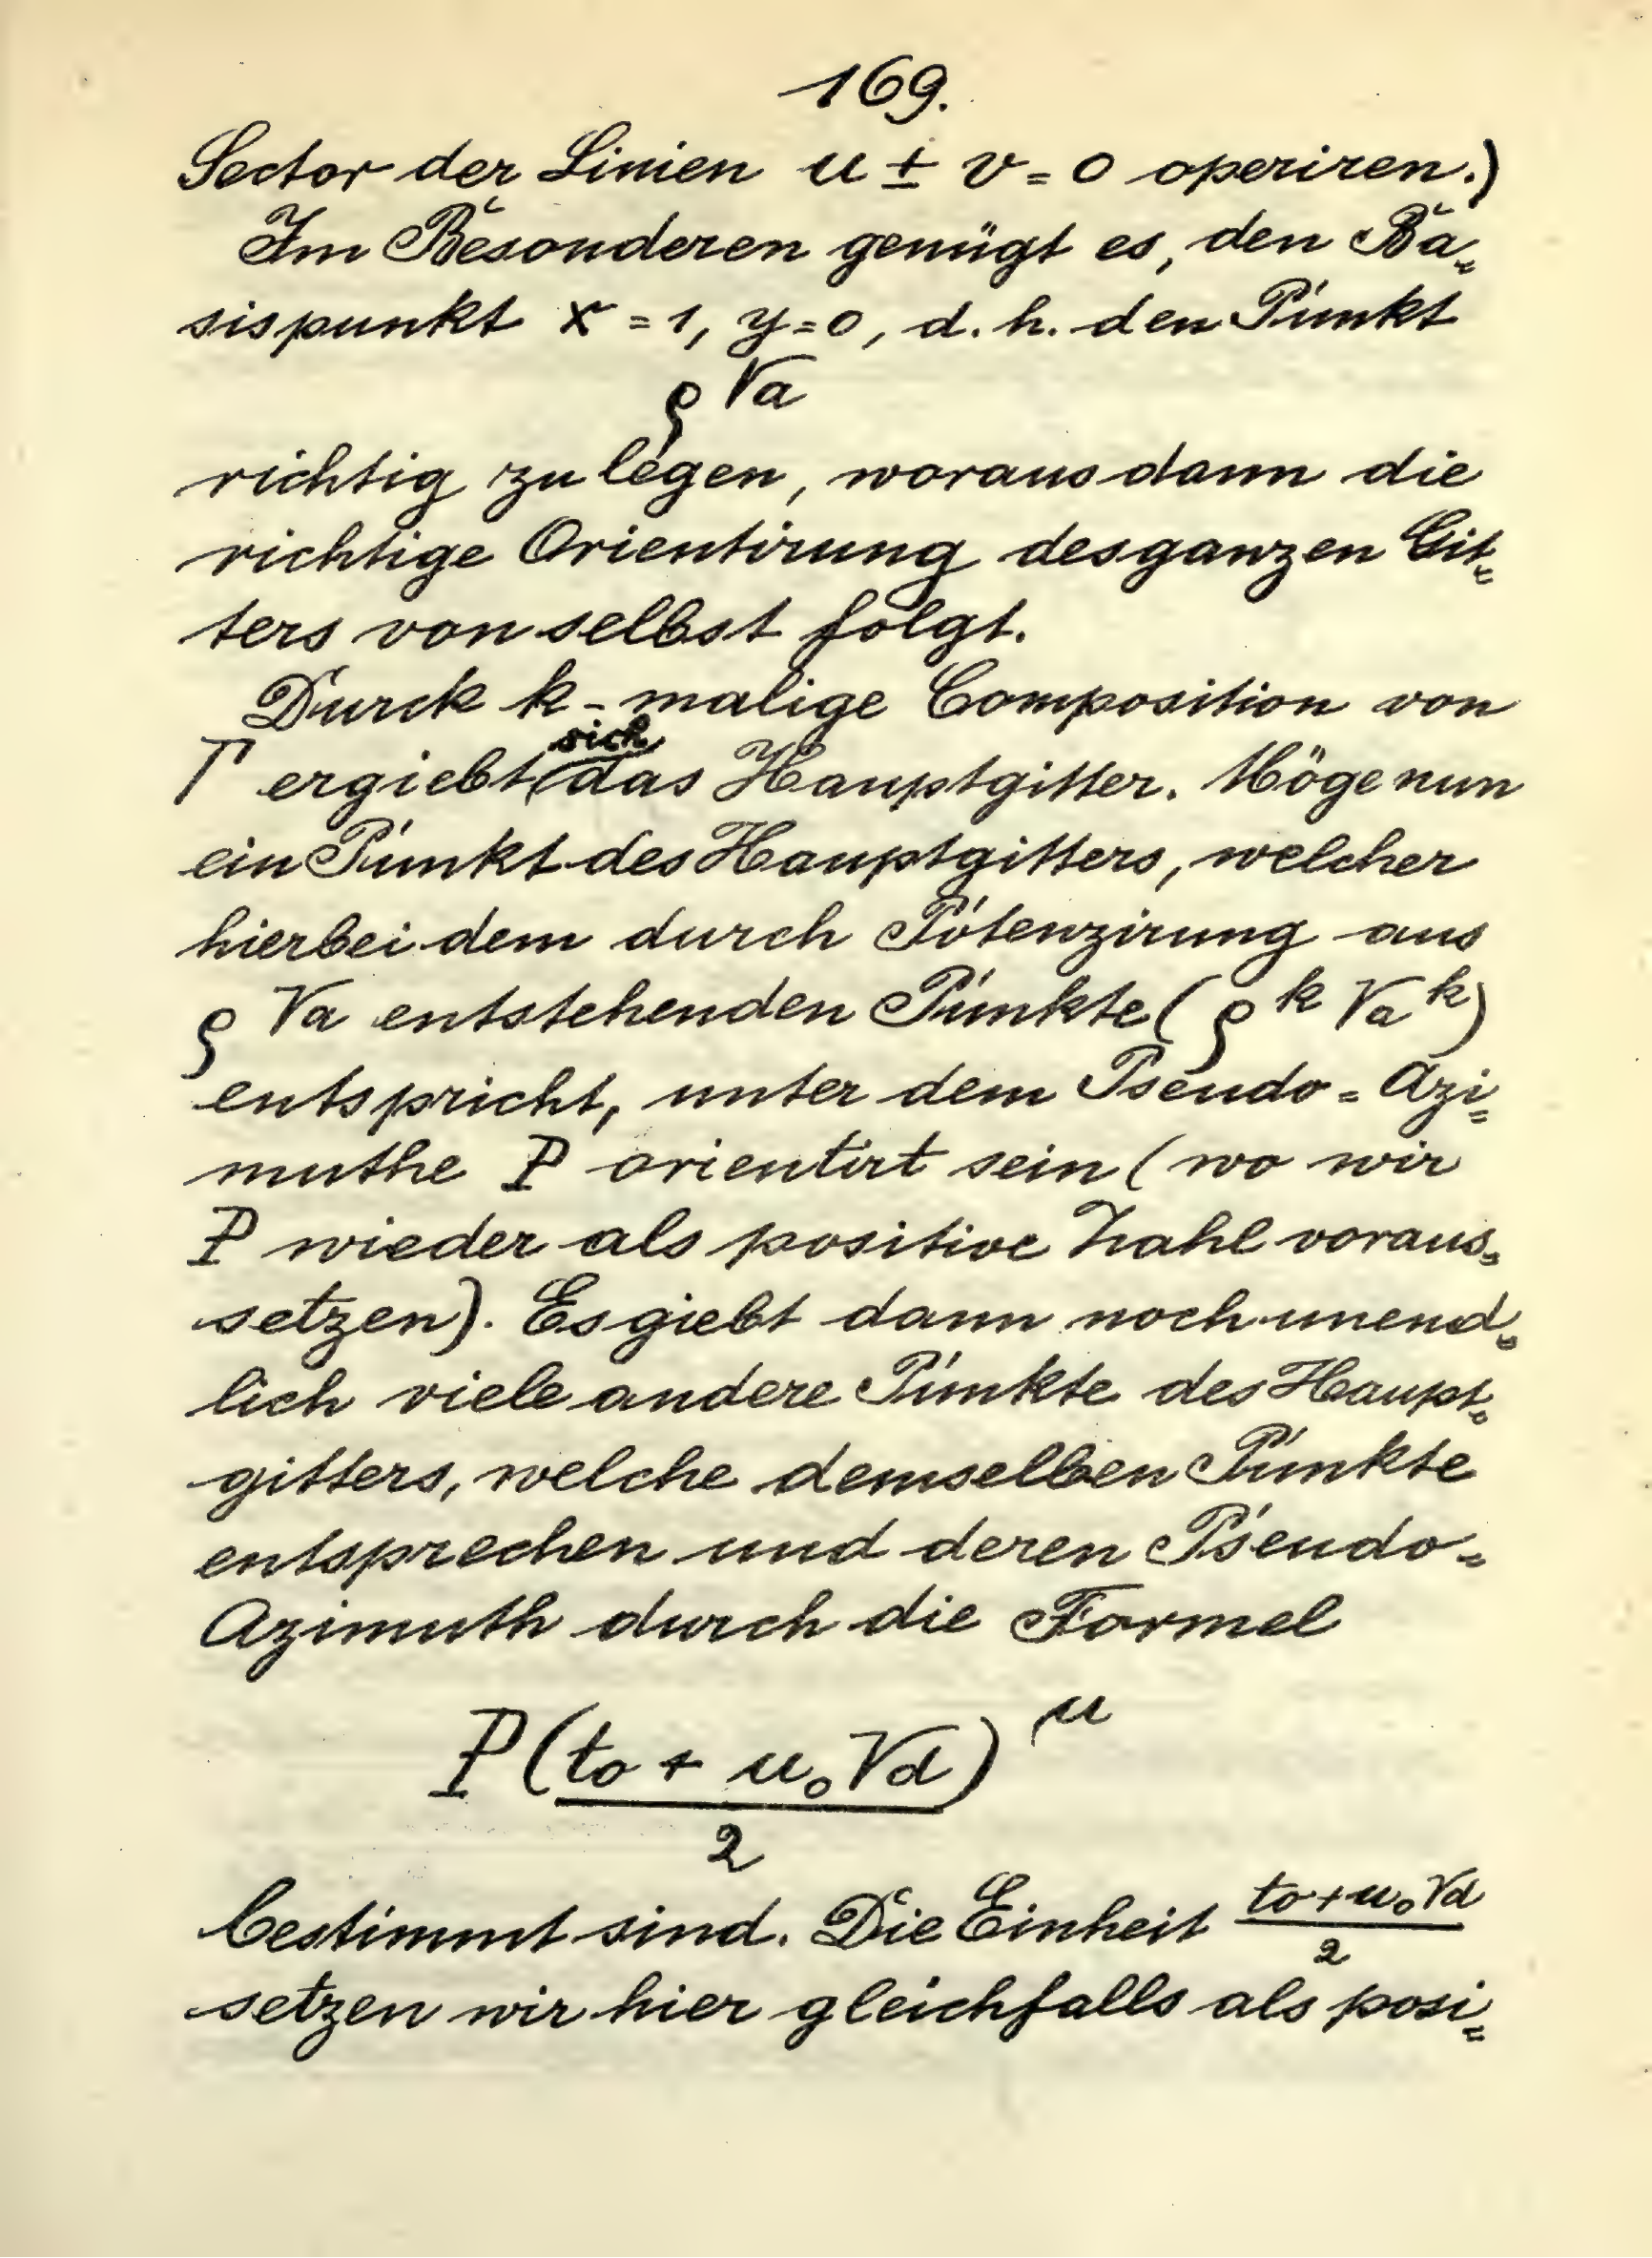 169.
Sector der Linien u ± v = 0 operiren.)
Im Besonderen genügt es, den Ba=
sispunkt x = 1, y = 0, d. h. den Punkt
ϱ √a
richtig zu legen, woraus dann die
richtige Orientirung des ganzen Git=
ters von selbst folgt.
Durch k-malige Composition von
Γ ergiebt sich das Hauptgitter. Möge nun
ein Punkt des Hauptgitters, welcher
hierbei dem durch Potenzirung aus
ϱ √a entstehenden Punkte (ϱ^k √a^k)
entspricht, unter dem Pseudo=Azi=
muthe P orientirt sein (wo wir
P wieder als positive Zahl voraus=
setzen). Es giebt dann noch unend=
lich viele andere Punkte des Haupt=
gitters, welche demselben Punkte
entsprechen und deren Pseudo=
Azimuth durch die Formel
P((t₀ + u₀√d)/2)^μ
bestimmt sind. Die Einheit (t₀+u₀√d)/2
setzen wir hier gleichfalls als posi=